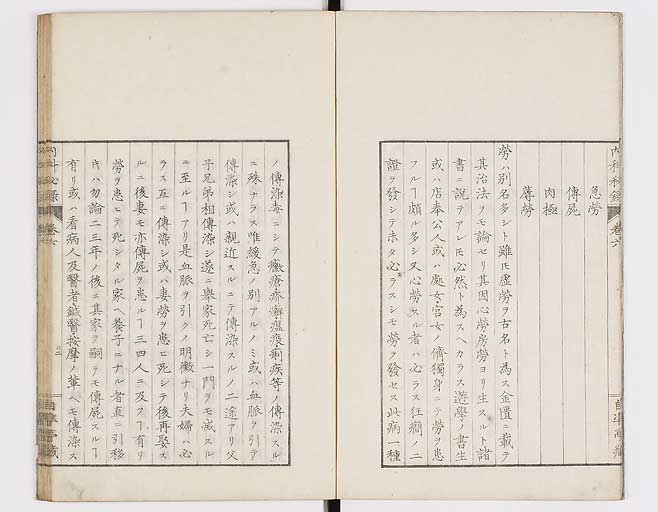 內科秘錄 卷六
急勞
傳屍
肉極
蓐勞
勞ハ別名多シト雖𪜈虛勞ヲ古名ト為ス金匱ニ載テ
其治法ヲモ論セリ其因心勞房勞ヨリ生スルト諸
書ニ說テアレ𪜈必然ト為スヘカラス遊學ノ書生
或ハ店奉公人或ハ處女宮女ノ儕獨身ニテ勞ヲ患
フルヿ頗ル多シ又心勞スル者ハ必ラス狂癇ノ二
證ヲ發シテ未タ必ラスシモ勞ヲ發セス此病一種
ノ傳染毒ニシテ黴瘡疥癬瘟疫痢疾等ノ傳染スル
ニ殊ナラス唯緩急ノ別アルノミ或ハ血脈ヲ引テ
傳染シ或ハ親近スルニテ傳染スルノ二途アリ父
子兄弟相傳染シ遂ニ擧家死亡シ一門ヲモ滅スル
ニ至ルヿアリ是血脈ヲ引クノ明徵ナリ夫婦ハ必
ラス互ニ傳染シ或ハ妻勞ヲ患ヒ死シテ後再娶ス
ルニ後妻モ亦傳屍ヲ患ルヿ三四人ニ及フヿ有リ
勞ヲ患ヒテ死シタル家ヘ養子ニナル者直ニ引移
ルハ勿論二三年ノ後ニ其家ヲ嗣テモ傳屍スルヿ
有リ或ハ看病人及醫者鍼醫按摩ノ輩ヘモ傳染ス